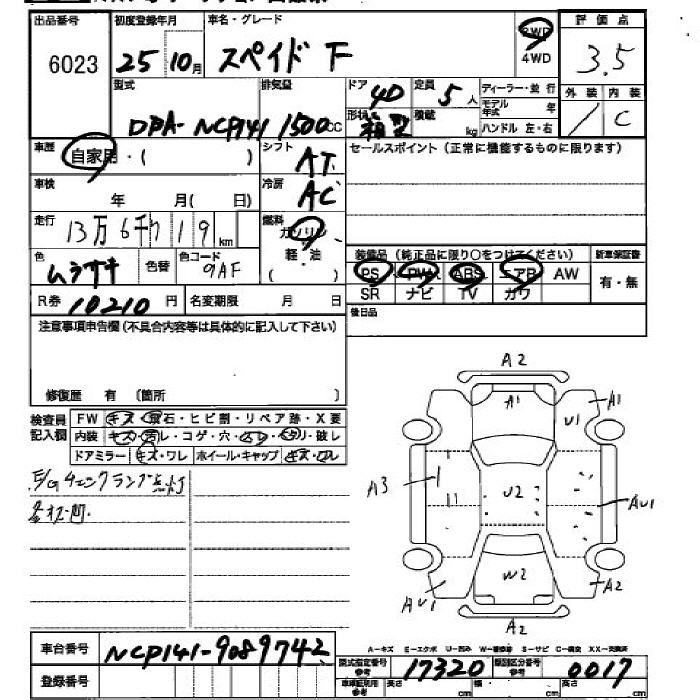 出品番号 初度登録年月 車名・グレード 2WD 評価点
6023 25 10月 スペイド F 4WD 3.5
型式 排気量 ドア 4D 定員 5人 ディーラー・並行 外装 内装
DBA-NCP141 1500cc 形状 箱型 積載 kg モデル年式 年 / C
ハンドル 左・右
車歴 自家用・( ) シフト AT セールスポイント(正常に機能するものに限ります)
車検 年 月(日) 冷房 AC
走行 13万6千719km 燃料 ガソリン
軽・油
色 ムラサキ 色替 色コード 9AF 装備品(純正品に限り○をつけてください) 新車保証書
PS PW ABS エアB AW 有・無
R券 10210円 名変期限 月 日 SR ナビ TV カワ
注意事項申告欄(不具合内容等は具体的に記入して下さい) 後日品
修復歴 有 〔箇所 〕
検査員記入欄 FW キズ・飛石・ヒビ割・リペア跡・X要
内装 キズ・汚レ・コゲ・穴・スレ・ヘタリ・破レ
ドアミラー キズ・ワレ ホイール・キャップ キズ・ワレ
E/Gチェックランプ点灯
A2
A1 U1 A1
A3 U2 AU1
W2
AU1 A2
A2
A-キズ E-エクボ U-凹み W-補修跡 S-サビ C-腐食 XX-交換済
車台番号 NCP141-9089742 型式指定番号 参考 17320 類別区分番号 参考 0017
登録番号 車庫証明用 参考 長さ cm 幅 cm 高さ cm